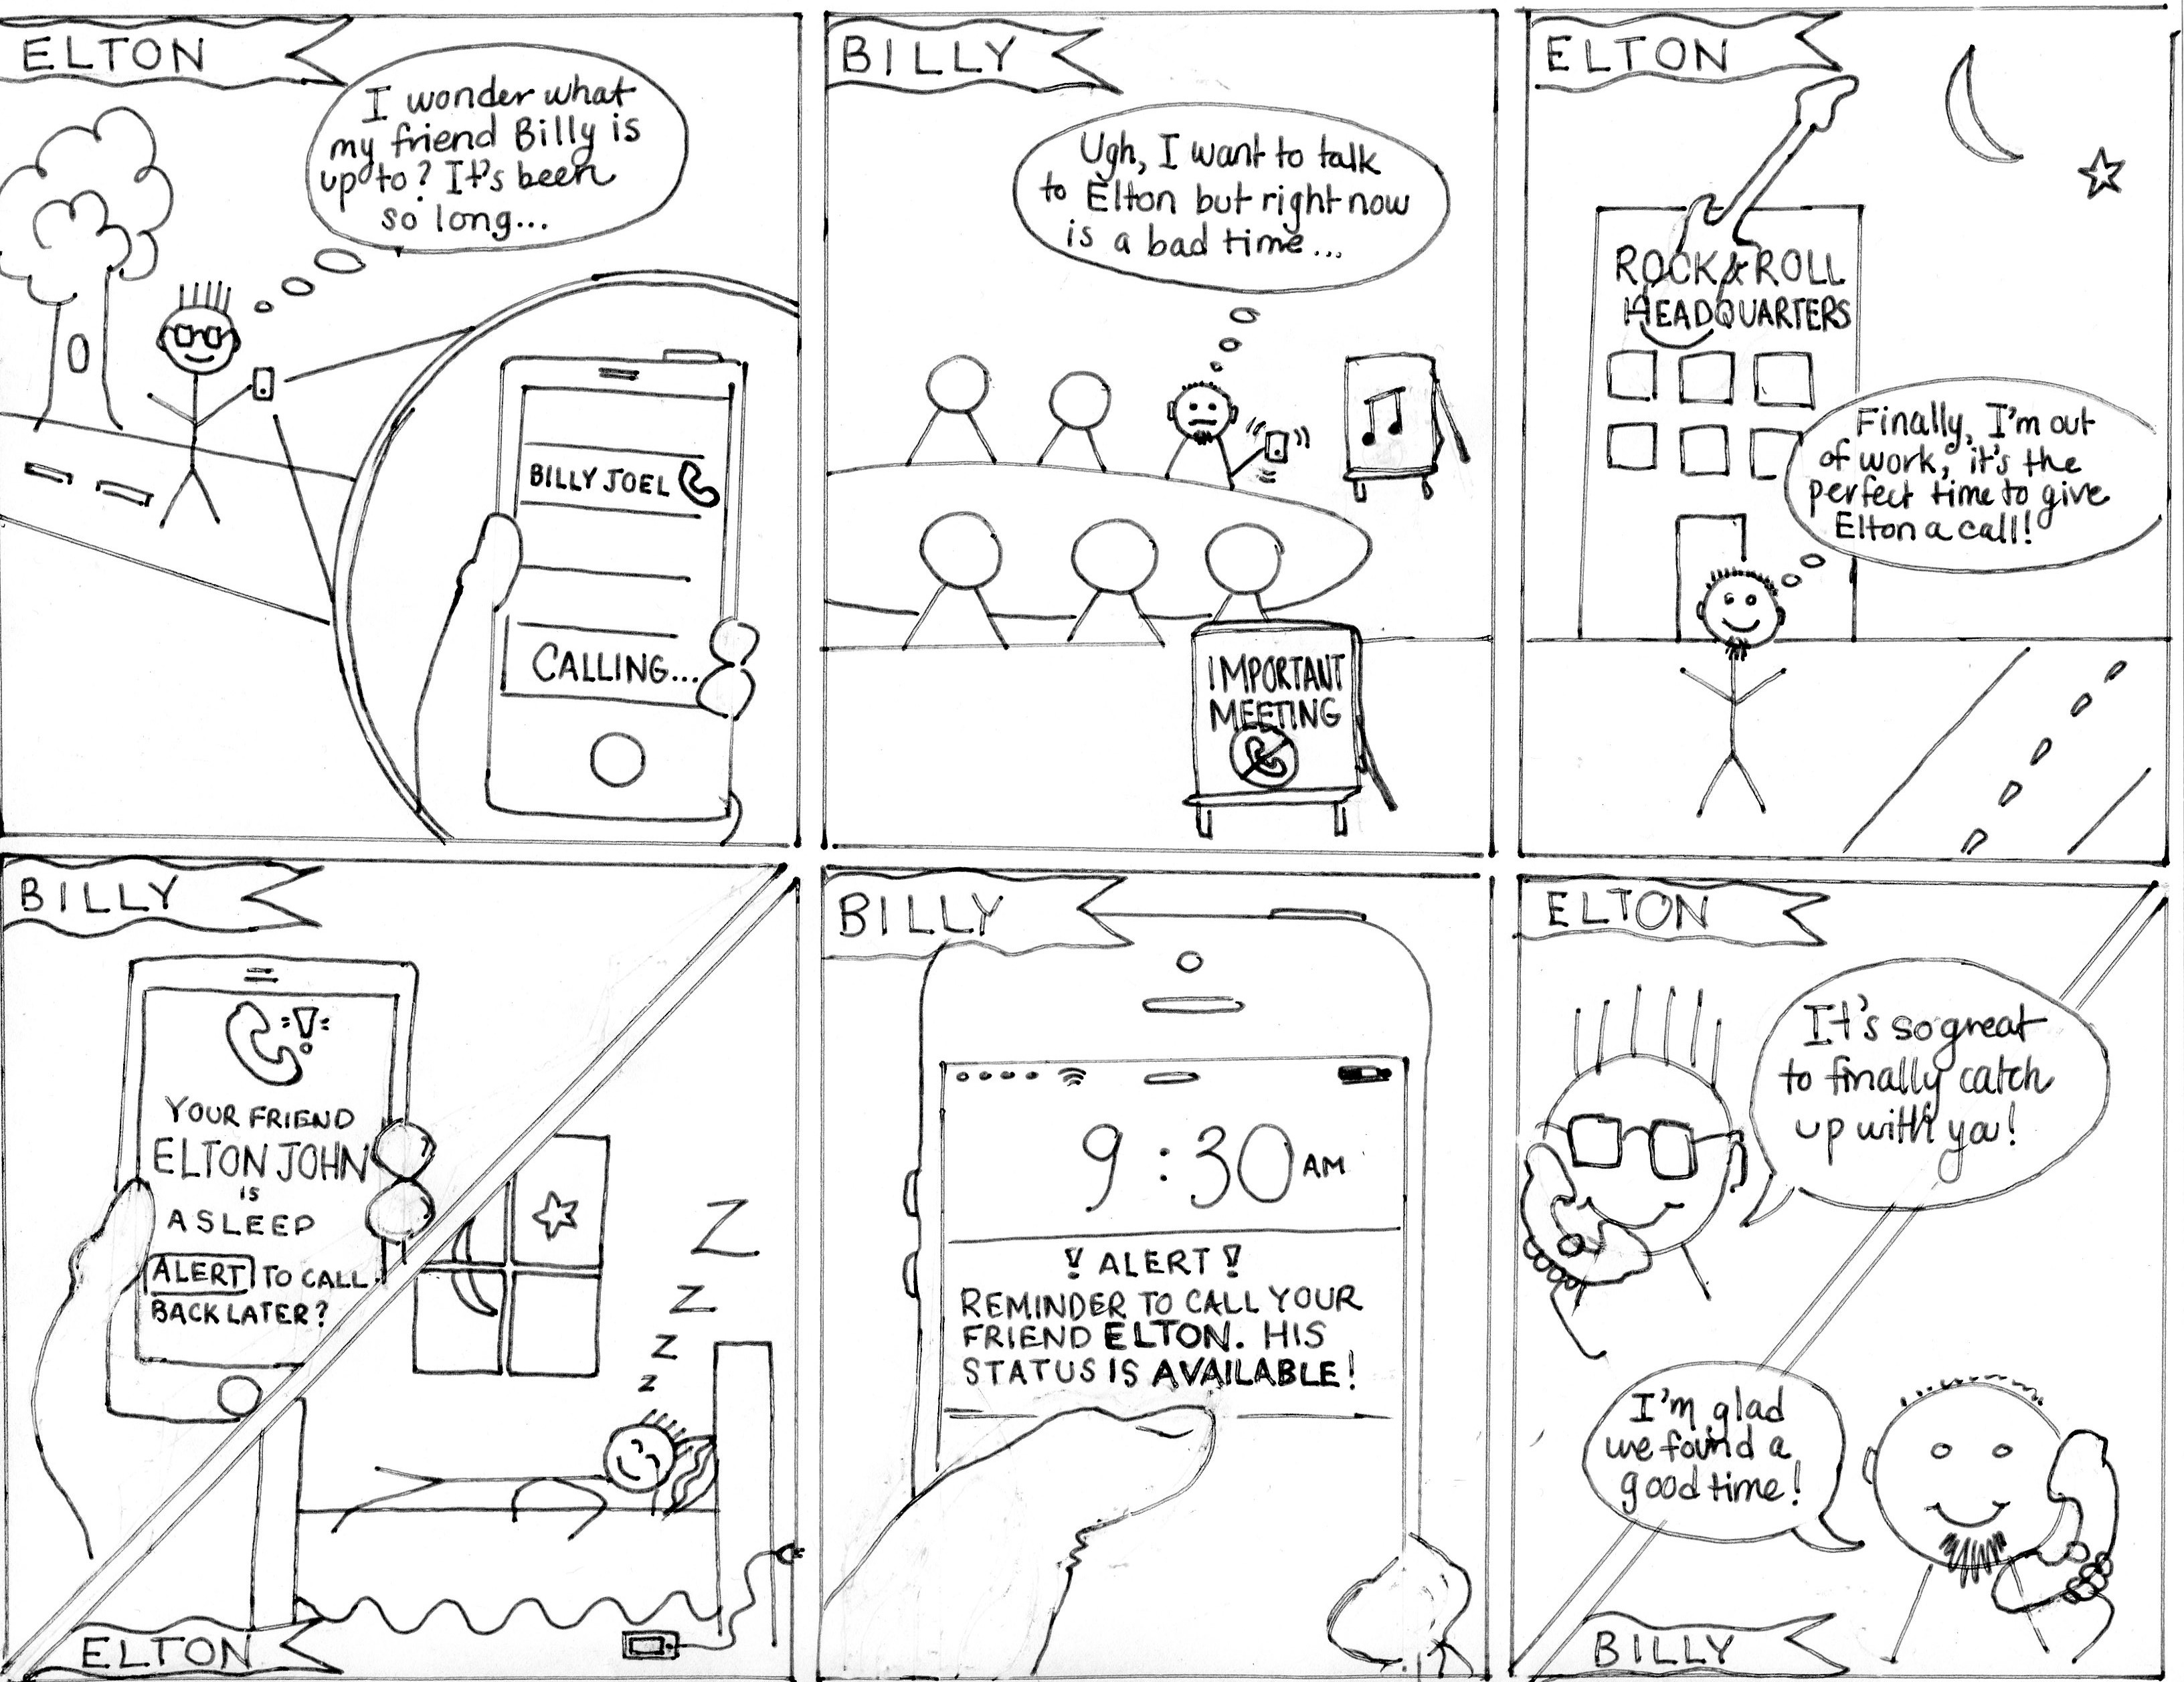 ELTON
I wonder what
my friend Billy is
up to? It's been
so long...
BILLY JOEL
CALLING...
BILLY
Ugh, I want to talk
to Elton but right now
is a bad time...
IMPORTANT
MEETING
ELTON
ROCK & ROLL
HEADQUARTERS
Finally, I'm out
of work, it's the
perfect time to give
Elton a call!
BILLY
YOUR FRIEND
ELTON JOHN
IS
ASLEEP
ALERT TO CALL
BACK LATER?
Z
Z
Z
Z
ELTON
BILLY
9:30 AM
! ALERT !
REMINDER TO CALL YOUR
FRIEND ELTON. HIS
STATUS IS AVAILABLE!
ELTON
It's so great
to finally catch
up with ya!
I'm glad
we found a
good time!
BILLY